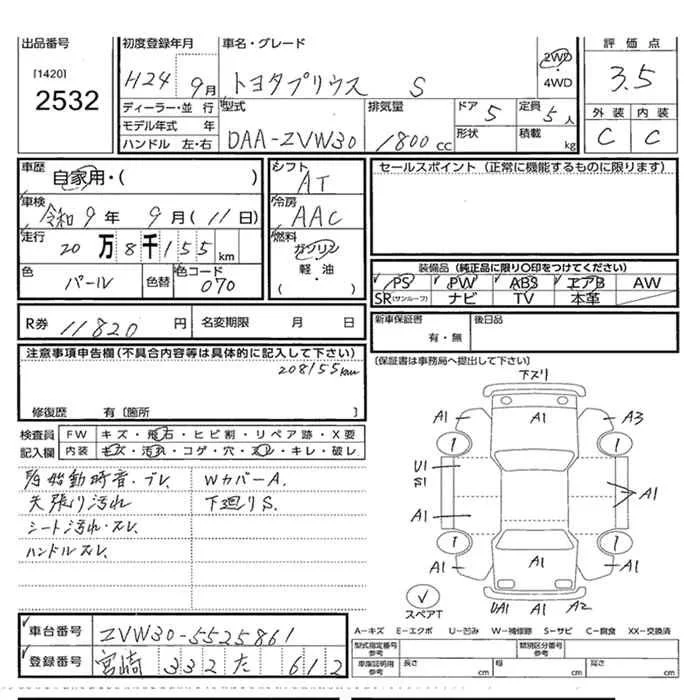 出品番号
[1420]
2532
初度登録年月
H24 9月
車名・グレード
トヨタプリウス S
2WD
・
4WD
評価点
3.5
外装 内装
C C
ディーラー・並行
モデル年式 年
ハンドル 左・右
型式
DAA-ZVW30
排気量
1800cc
ドア 5
形状
定員 5人
積載 kg
車歴
自家用・( )
車検
令和9年 9月(11日)
走行
20万8千155km
色
パール
色替
色コード
070
シフト
AT
冷房
AAC
燃料
ガソリン
軽・油
・
( )
セールスポイント(正常に機能するものに限ります)
装備品(純正品に限り○印をつけてください)
PS PW ABS エアB AW
SR(サンルーフ) ナビ TV 本革
R券 11820円
名変期限 月 日
新車保証書
有・無
後日品
注意事項申告欄(不具合内容等は具体的に記入して下さい)
208155km
修復歴 有〔箇所 〕
〔保証書は事務局へ提出して下さい〕
検査員
記入欄
FW キズ・飛石・ヒビ割・リペア跡・X要
内装 キズ・汚れ・コゲ・穴・スレ・キレ・破レ
始動時音・ブレ、 WカバーA.
天張り汚れ 下廻りS.
シート汚れ・スレ.
ハンドルスレ.
下スリ
A1 A1 A3
1 1
U1
S1
A1 A1
1 1
A1 A1 A1
スペアT
UA1 A1 A2
車台番号 ZVW30-5525861
登録番号 宮崎 332 た 612
A―キズ E―エクボ U―凹み W―補修跡 S―サビ C―腐食 XX―交換済
型式指定番号
参考
類別区分番号
参考
車庫証明用
参考
長さ cm
幅 cm
高さ cm